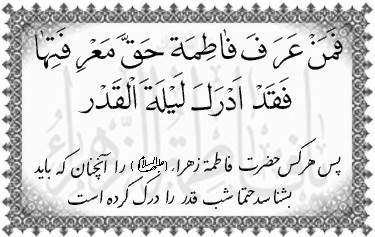 فَمَنْ عَرَفَ فَاطِمَةَ حَقَّ مَعْرِفَتِهَا
فَقَدْ اَدْرَكَ لَيْلَةَ الْقَدْرِ
پس هرکس حضرت فاطمهٔ زهراء (علیهاالسلام) را آنچنان که باید
بشناسد حتما شب قدر را درک کرده است